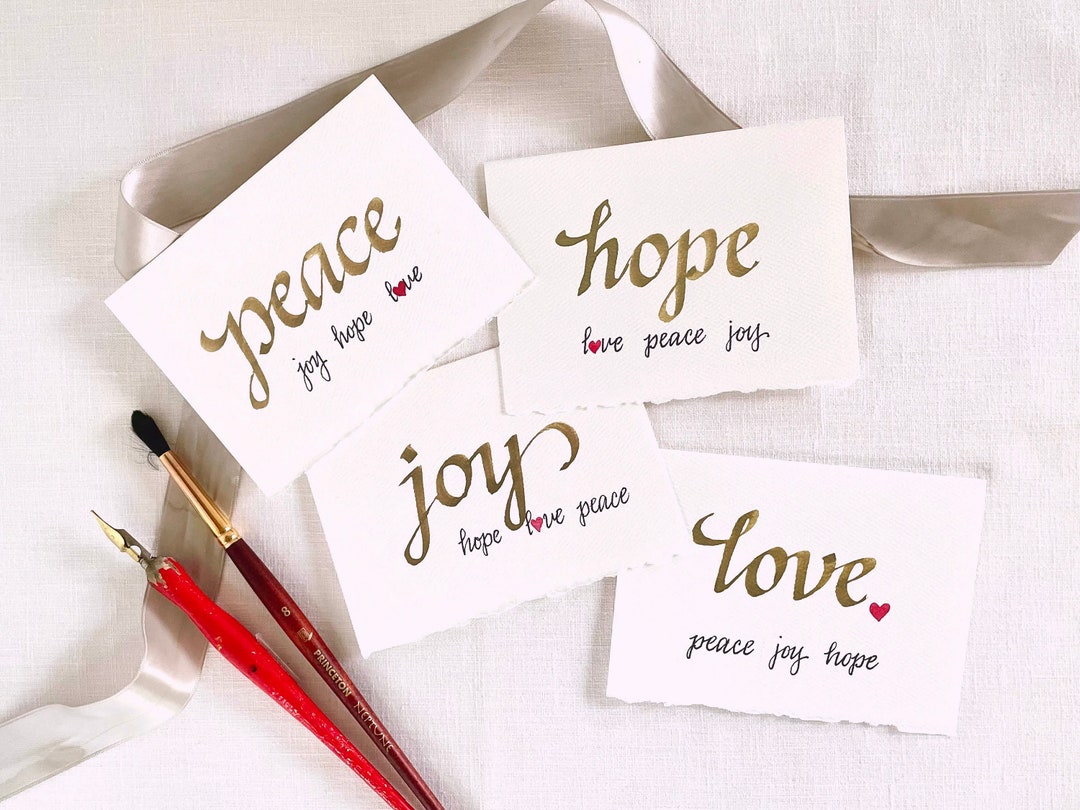 peace
joy hope love
hope
love peace joy
joy
hope love peace
love
peace joy hope
8 PRINCETON NEPTUNE